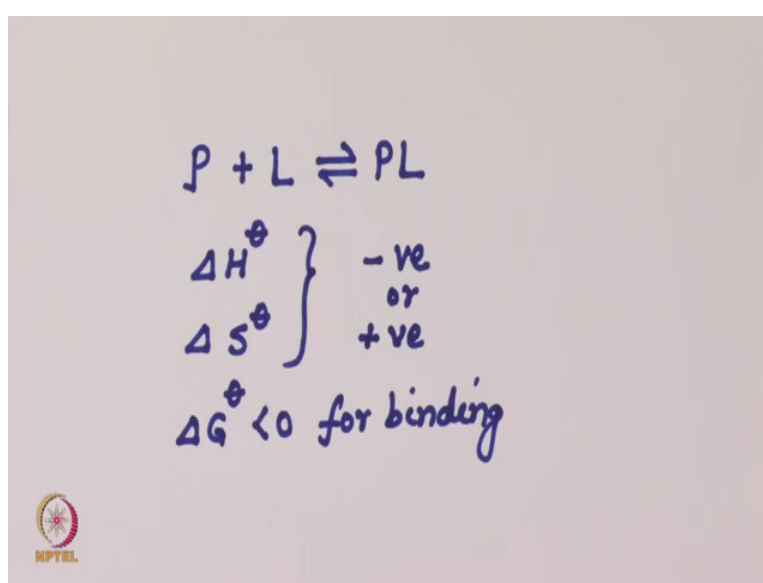 P + L ⇌ PL
ΔH^⦵ } -ve
or
ΔS^⦵ +ve
ΔG^⦵ <0 for binding
NPTEL